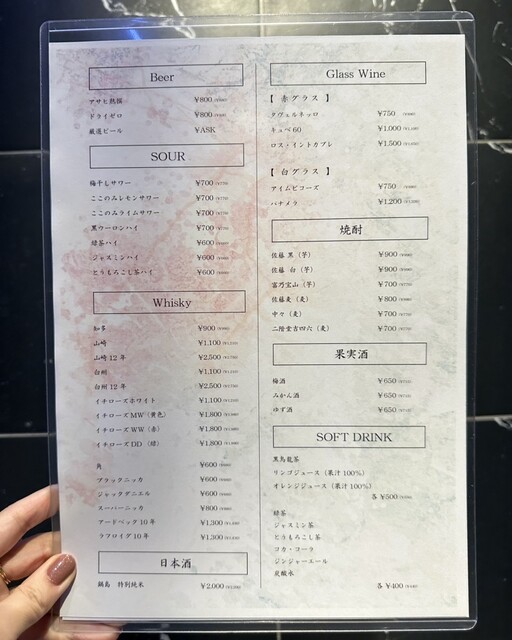 Beer
アサヒ熟撰 ¥800
ドライゼロ ¥800
厳選ビール ¥ASK
SOUR
梅干しサワー ¥700
ここのみレモンサワー ¥700
ここのみライムサワー ¥700
黒ウーロンハイ ¥700
緑茶ハイ ¥600
ジャスミンハイ ¥600
とうもろこし茶ハイ ¥600
Whisky
知多 ¥900
山崎 ¥1,100
山崎12年 ¥2,500
白州 ¥1,100
白州12年 ¥2,500
イチローズホワイト ¥1,100
イチローズMW（黄色） ¥1,800
イチローズWW（赤） ¥1,800
イチローズDD（緑） ¥1,800
角 ¥600
ブラックニッカ ¥600
ジャックダニエル ¥600
スーパーニッカ ¥800
アードベック10年 ¥1,300
ラフロイグ10年 ¥1,300
日本酒
鍋島 特別純米 ¥2,000
Glass Wine
【 赤グラス 】
タヴェルネッロ ¥750
キュベ60 ¥1,000
ロス・イントカブレ ¥1,500
【 白グラス 】
アイムビコーズ ¥750
パナメラ ¥1,200
焼酎
佐藤 黒（芋） ¥900
佐藤 白（芋） ¥900
富乃宝山（芋） ¥700
佐藤麦（麦） ¥800
中々（麦） ¥700
二階堂吉四六（麦） ¥700
果実酒
梅酒 ¥650
みかん酒 ¥650
ゆず酒 ¥650
SOFT DRINK
黒烏龍茶
リンゴジュース（果汁100%）
オレンジジュース（果汁100%）
各 ¥500
緑茶
ジャスミン茶
とうもろこし茶
コカ・コーラ
ジンジャーエール
炭酸水
各 ¥400